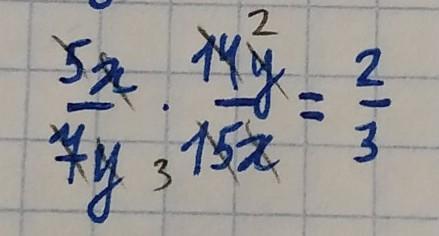 5x/7y · 14y/15x = 2/3
2
3